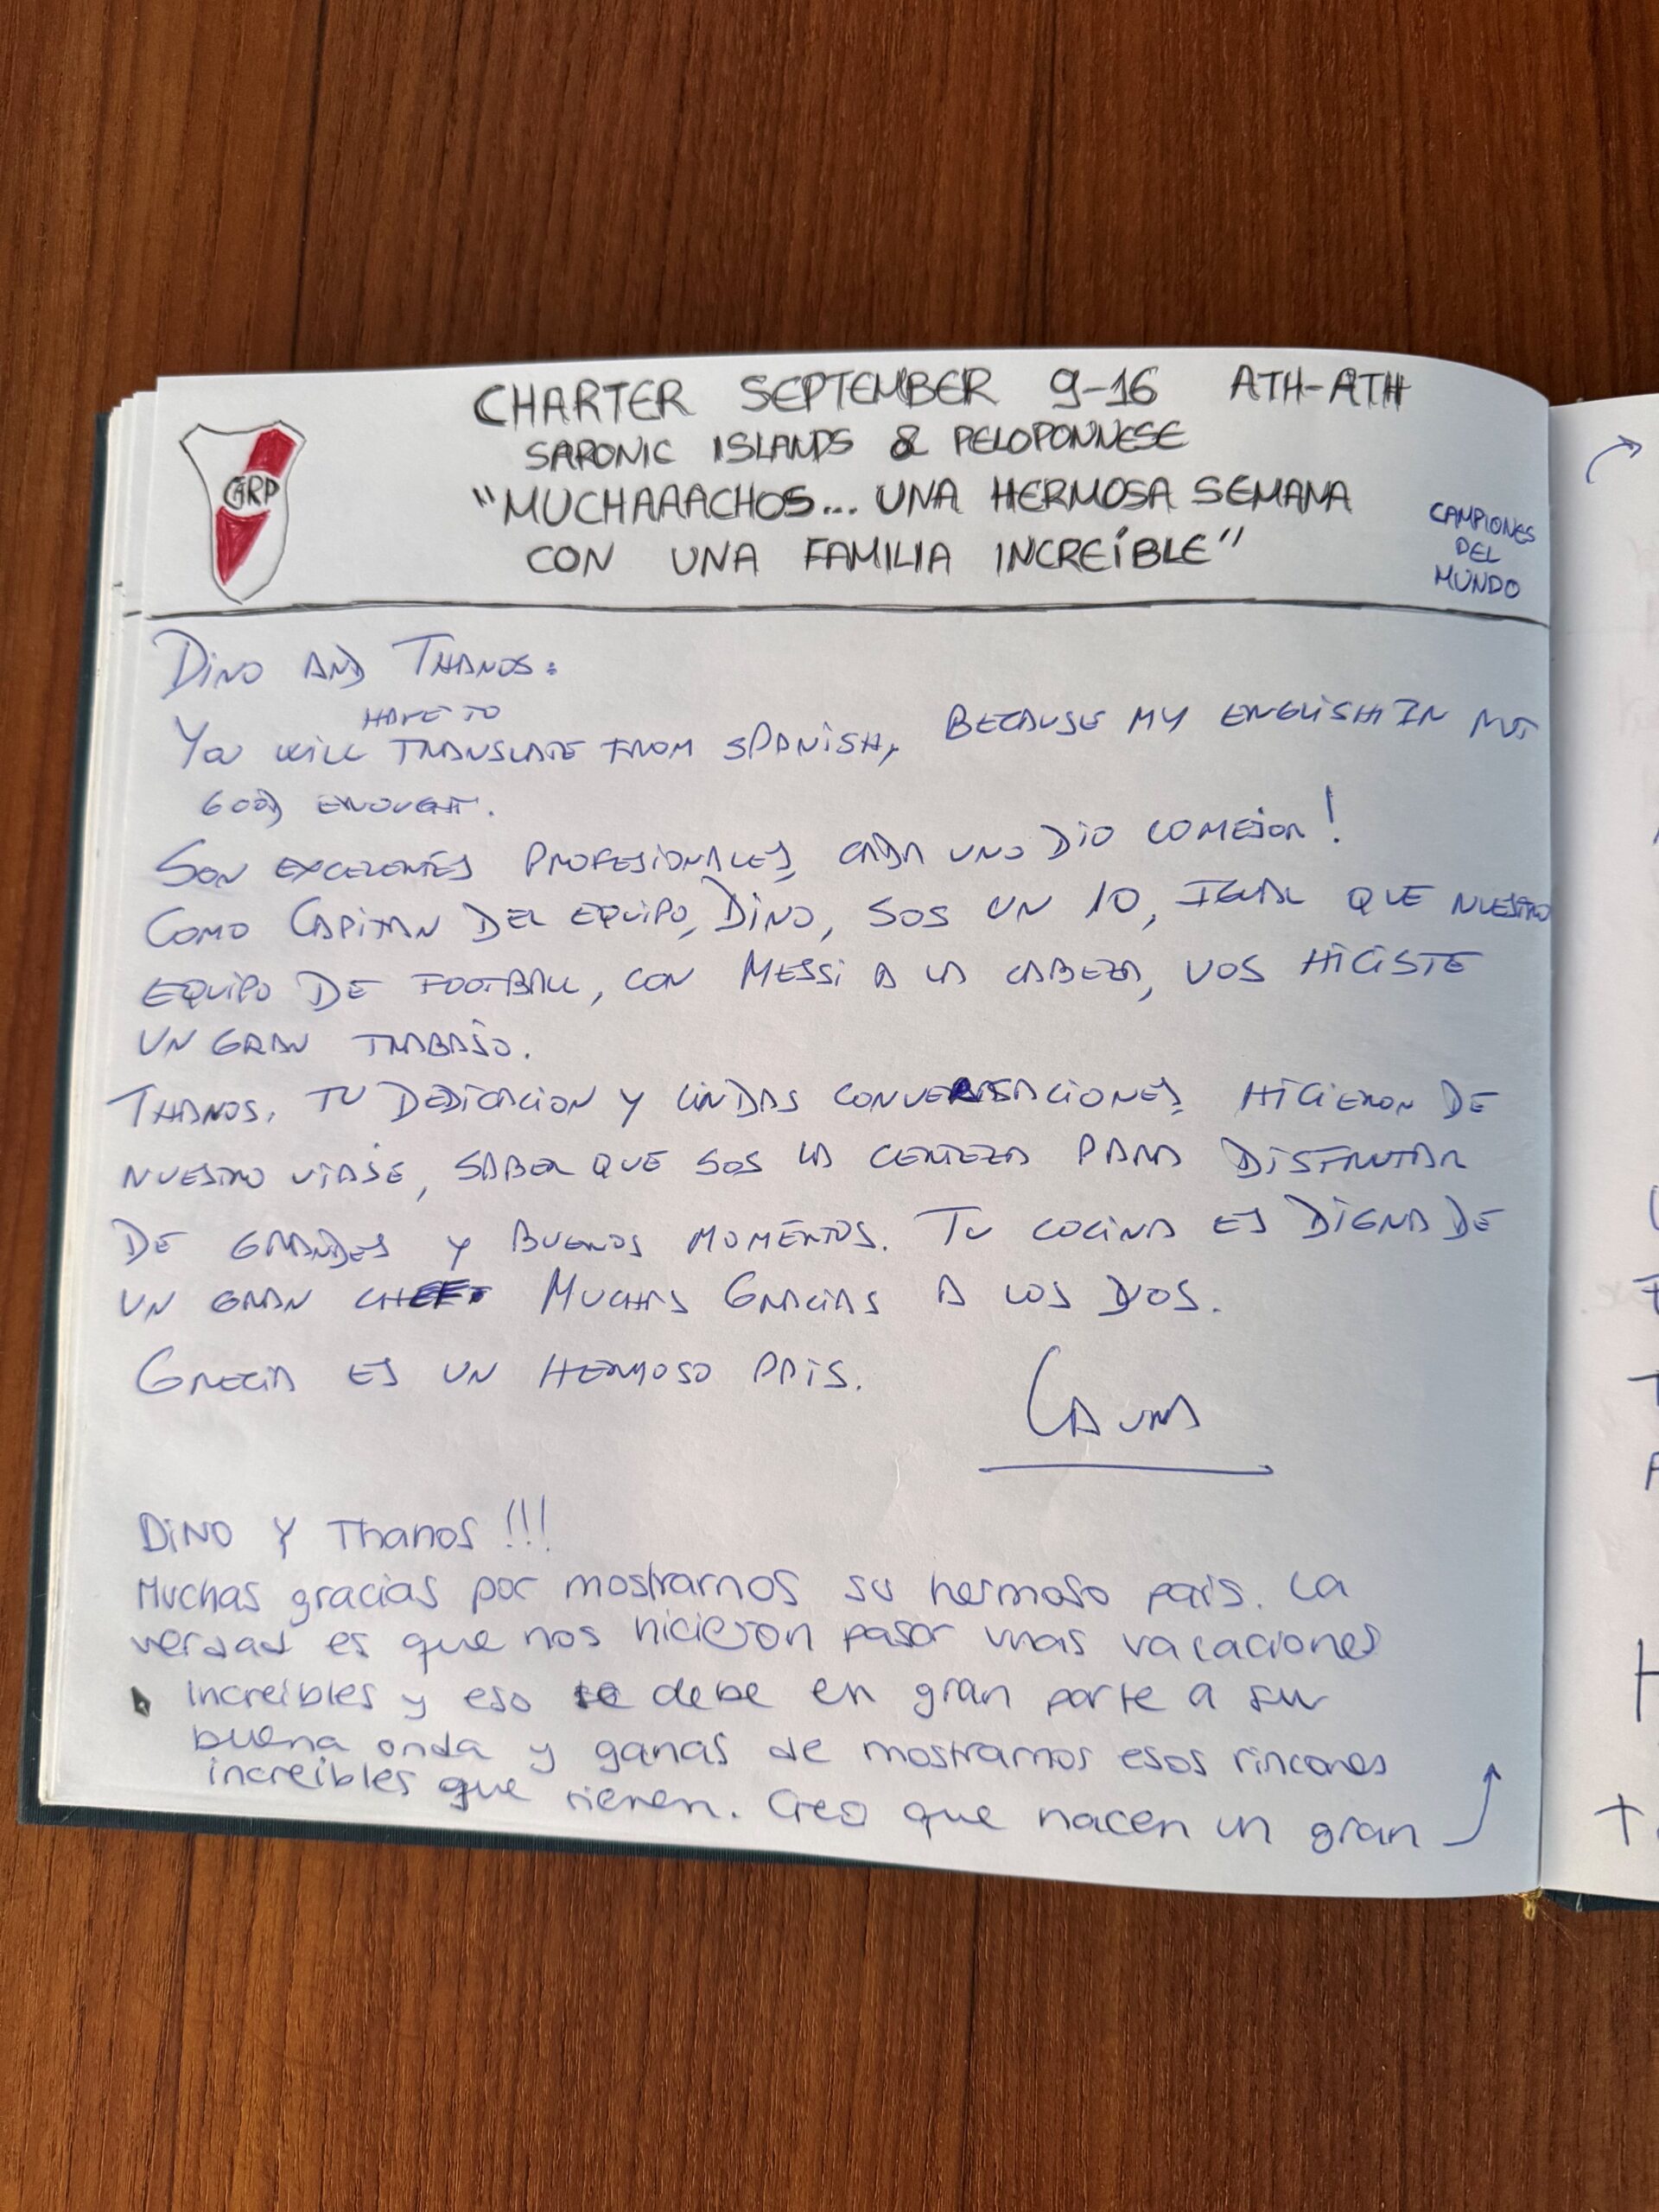 CHARTER SEPTEMBER 9-16 ATH-ATH
SARONIC ISLANDS & PELOPONNESE
"MUCHAAACHOS... UNA HERMOSA SEMANA
CON UNA FAMILIA INCREÍBLE"
CAMPIONES
DEL
MUNDO
CARP
DINO AND THANOS:
HAVE TO
YOU WILL TRANSLATE FROM SPANISH, BECAUSE MY ENGLISH IN NOT
GOOD ENOUGHT.
SON EXCELENTES PROFESIONALES, CADA UNO DIO LO MEJOR!
COMO CAPITAN DEL EQUIPO, DINO, SOS UN 10, IGUAL QUE NUESTRO
EQUIPO DE FOOTBALL, CON MESSI A LA CABEZA, VOS HICISTE
UN GRAN TRABAJO.
THANOS, TU DEDICACION Y LINDAS CONVERSACIONES, HICIERON DE
NUESTRO VIAJE, SABER QUE SOS LA CERTEZA PARA DISFRUTAR
DE GRANDES Y BUENOS MOMENTOS. TU COCINA ES DIGNA DE
UN GRAN CHEF. MUCHAS GRACIAS A LOS DOS.
GRECIA ES UN HERMOSO PAIS.
LAURA
DINO Y Thanos!!!
Muchas gracias por mostrarnos su hermoso pais. La
verdad es que nos hicieron pasar unas vacaciones
increibles y eso se debe en gran parte a su
buena onda y ganas de mostrarnos esos rincones
increibles que tienen. Creo que hacen un gran